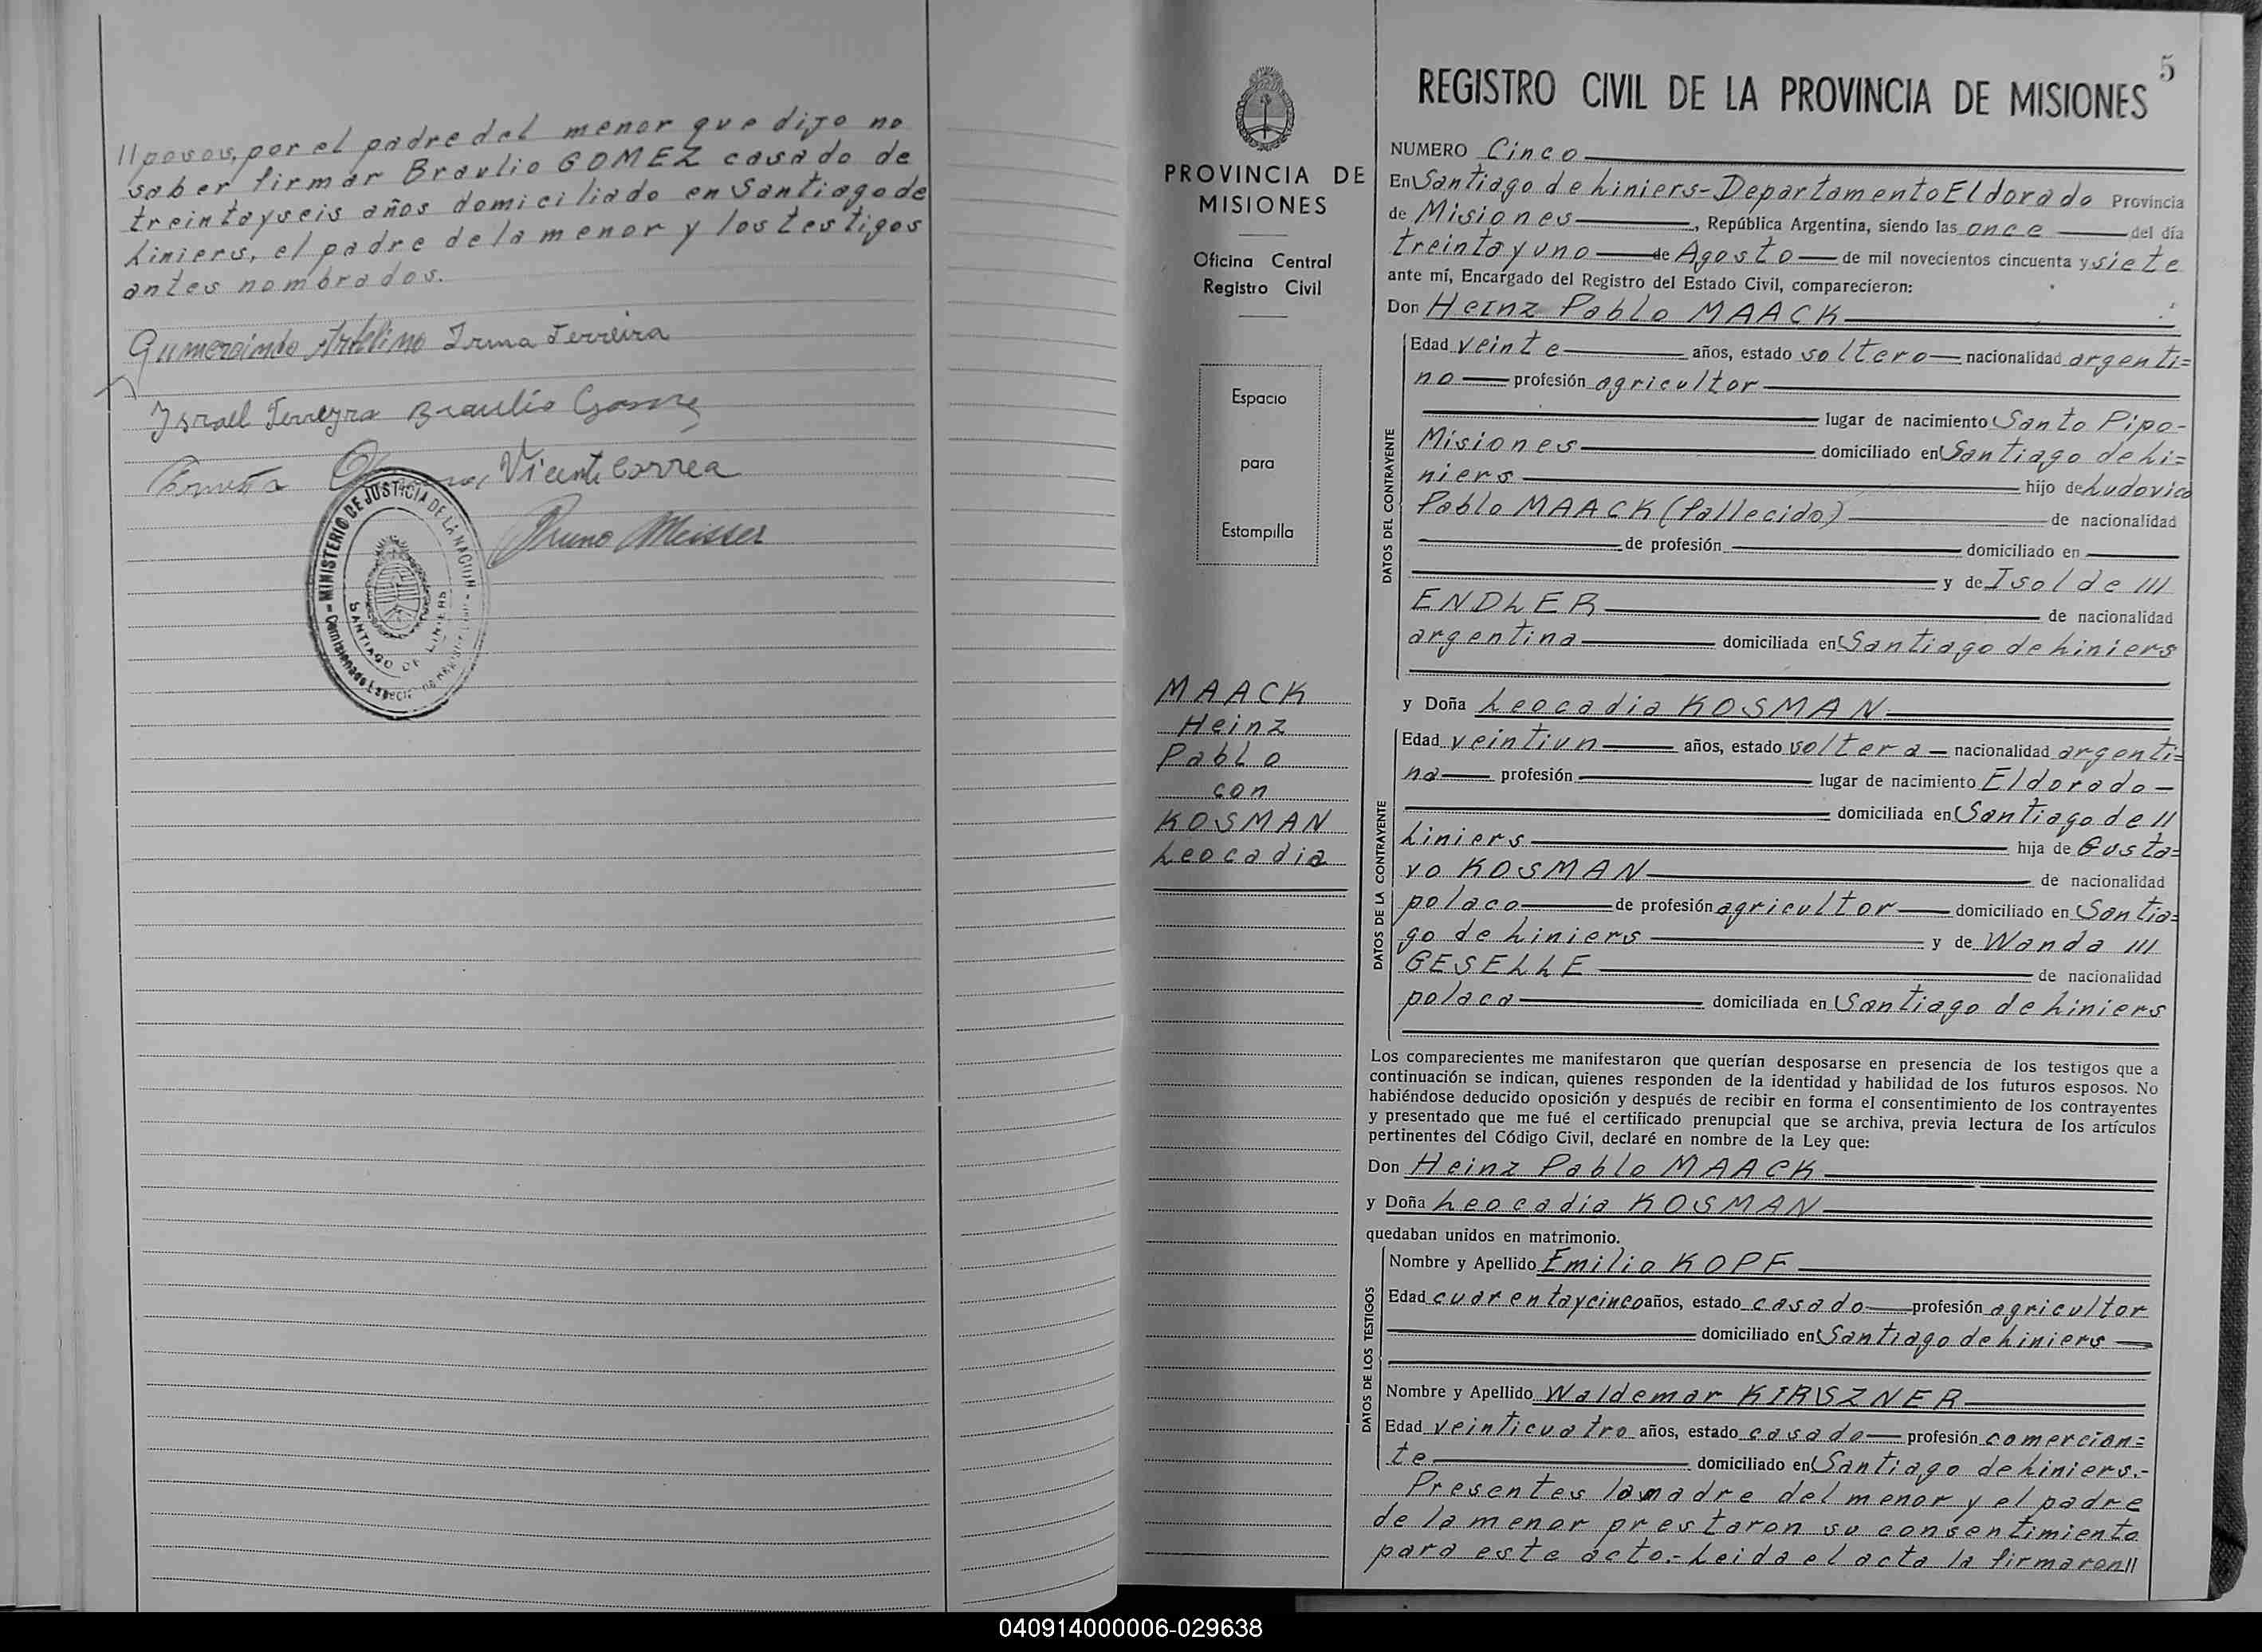 //posos, por el padre del menor que dijo no
saber firmar Braulio GOMEZ casado de
treinta y seis años domiciliado en Santiago de
Liniers, el padre de la menor y los testigos
antes nombrados.
Gumersindo Avelino Irma Ferreira
Israel Ferreyra Braulio Gomez
Vicente Correa
Bruno Meisser
MINISTERIO DE JUSTICIA DE LA NACION
SANTIAGO DE LINIERS
5
PROVINCIA DE
MISIONES
Oficina Central
Registro Civil
Espacio
para
Estampilla
MAACK
Heinz
Pablo
con
KOSMAN
Leocadia
REGISTRO CIVIL DE LA PROVINCIA DE MISIONES
NUMERO Cinco
En Santiago de Liniers-Departamento Eldorado Provincia
de Misiones, República Argentina, siendo las once del día
treinta y uno de Agosto de mil novecientos cincuenta y siete
ante mí, Encargado del Registro del Estado Civil, comparecieron:
Don Heinz Pablo MAACK
DATOS DEL CONTRAYENTE
Edad veinte años, estado soltero nacionalidad argenti=
no profesión agricultor
lugar de nacimiento Santo Pipo-
Misiones domiciliado en Santiago de Li=
niers hijo de Ludovico
Pablo MAACK (fallecido) de nacionalidad
de profesión domiciliado en
y de Isolde ///
ENDLER de nacionalidad
argentina domiciliada en Santiago de Liniers
y Doña Leocadia KOSMAN
DATOS DE LA CONTRAYENTE
Edad veintiun años, estado soltera nacionalidad argenti=
na profesión lugar de nacimiento Eldorado-
domiciliada en Santiago de //
Liniers hija de Gusta=
vo KOSMAN de nacionalidad
polaco de profesión agricultor domiciliado en Santia=
go de Liniers y de Wanda ///
GESELLE de nacionalidad
polaca domiciliada en Santiago de Liniers
Los comparecientes me manifestaron que querían desposarse en presencia de los testigos que a
continuación se indican, quienes responden de la identidad y habilidad de los futuros esposos. No
habiéndose deducido oposición y después de recibir en forma el consentimiento de los contrayentes
y presentado que me fué el certificado prenupcial que se archiva, previa lectura de los artículos
pertinentes del Código Civil, declaré en nombre de la Ley que:
Don Heinz Pablo MAACK
y Doña Leocadia KOSMAN
quedaban unidos en matrimonio.
DATOS DE LOS TESTIGOS
Nombre y Apellido Emilio KOPF
Edad cuarenta y cinco años, estado casado profesión agricultor
domiciliado en Santiago de Liniers
Nombre y Apellido Waldemar KIRSZNER
Edad veinticuatro años, estado casado profesión comercian=
te domiciliado en Santiago de Liniers.-
Presentes la madre del menor y el padre
de la menor prestaron su consentimiento
para este acto.- Leida el acta la firmaron//
040914000006-029638